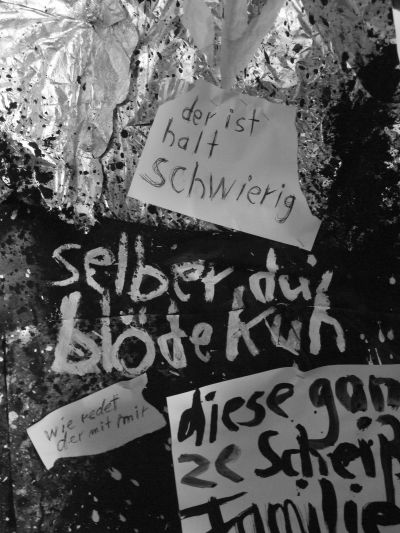 der ist
halt
schwierig
selber, du
blöde Kuh
wie redet
der mit mir
diese gan
ze Scheiß
Familie